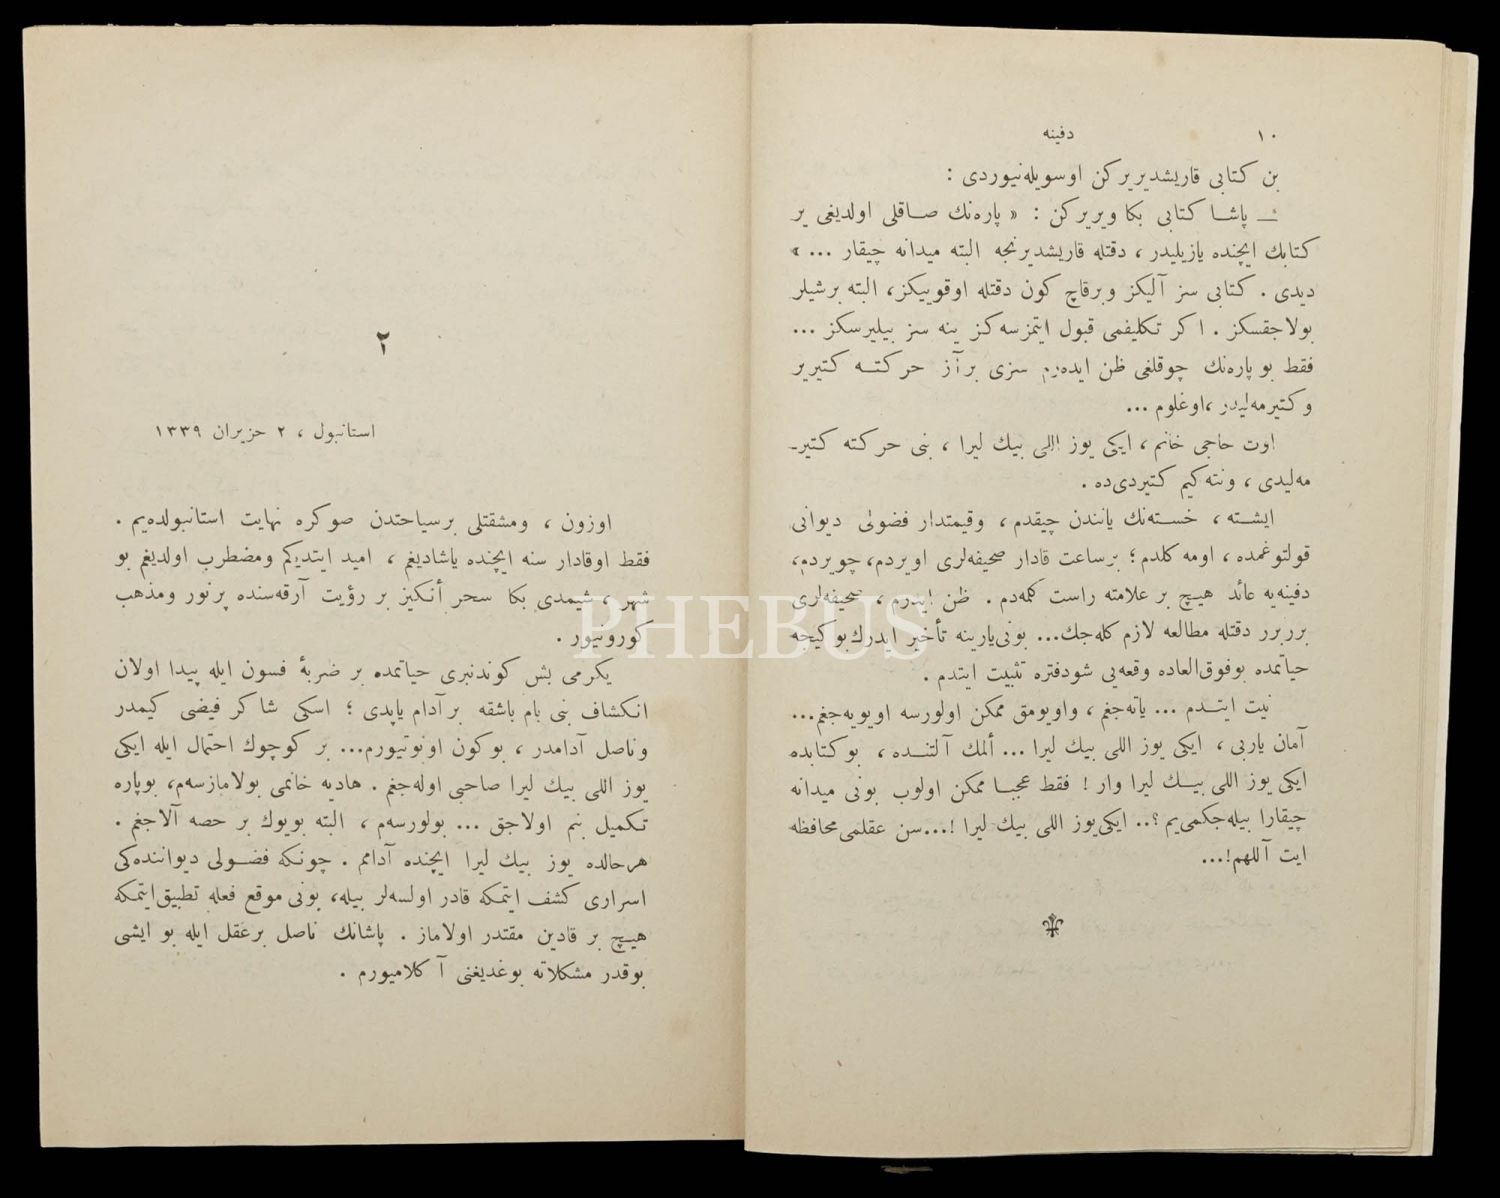 ١٠ دفینه
بن كتابی قاریشدیریركن اوسویله‌نیوردی :
— پاشا كتابی بكا ویریركن : « پاره‌نك صاقلی اولدیغی یر
كتابك ایچنده یازیلیدر ، دقتله قاریشدیرنجه البته میدانه چیقار ... »
دیدی . كتابی سز آلیكز وبرقاچ كون دقتله اوقوییكز، البته برشیلر
بولاجقسكز . اكر تكلیفمی قبول ایتمزسه‌كز ینه سز بیلیرسكز ...
فقط بو پاره‌نك چوقلغی ظن ایده‌رم سزی برآز حركتـه كتیریر
وكتیرمه‌لیدر ،اوغلوم ...
اوت حاجی خانم ، ایكی یوز اللی بیك لیرا ، بنی حركته كتیر‌ـ
مه‌لیدی ، ونته‌كیم كتیردی‌ده .
ایشته ، خسته‌نك یانندن چیقدم ، وقیمتدار فضولی دیوانی
قولتوغمده ، اومه كلدم؛ برساعت قادار صحیفه‌لری اویردم، چویردم،
دفینه‌یه عائد هیچ بر علامته راست كلمه‌دم . ظن ایدرم ، صحیفه‌لری
بربرر دقتله مطالعه لازم كله‌جك... بونی‌یارینه تأخیر ایدرك‌بوكیجه
حیاتمده بوفوق‌العاده وقعه‌یی شودفتره تثبیت ایتدم .
نیت ایتـدم ... یاته‌جغم ، واویومق ممكن اولورسه اویویه‌جغم...
آمان یاربی ، ایكی یوز اللی بیك لیرا ... ألمك آلتنـده ، بوكتابده
ایكی یوز اللی بیـك لیرا وار ! فقط عجبـا ممكن اولوب بونی میدانه
چیقارا بیله‌جكمی‌یم ؟.. ایكی‌یوز اللی بیك لیرا !...سن عقلمی‌محافظه
ایت آللهم!...
٢
استانبول ، ٢ حزیران ١٣٣٩
اوزون ، ومشقتلی برسیاحتدن صوكره نهایت استانبولده‌یم .
فقط اوقادار سنه ایچنده یاشادیغم ، امید ایتدیكم ومضطرب اولدیغم بو
شهر ، شیمدی بكا سحر أنكیز بر رؤیت آرقه‌سنده پرنور ومذهب
كورونیور .
یكرمی بش كوندنبری حیاتمده بر ضربهٔ فسون ایله پیدا اولان
انكشاف بنی بام باشقه برآدام یاپدی ؛ اسكی شاكر فیضی كیمدر
وناصل آدامدر ، بوكون اونوتیورم... بر كوچوك احتمال ایله ایكی
یوز اللی بیك لیرا صاحبی اوله‌جغم . هادیه خانمی بولامازسه‌م، بوپاره
تكمیل بنم اولاجق ... بولورسه‌م ، البته بویوك بر حصه آلاجغم .
هرحالده یوز بیك لیرا ایچنده آدامم . چونكه فضـولی دیواننده‌كی
اسراری كشف ایتمكه قادر اولسه‌لر بیله، بونی موقع فعله تطبیق‌ایتمكه
هیـچ بر قادین مقتدر اولاماز . پاشانك ناصل برعقل ایله بو ایشی
بوقدر مشكلاته بوغدیغنی آ كلامیورم .
PHEBUS